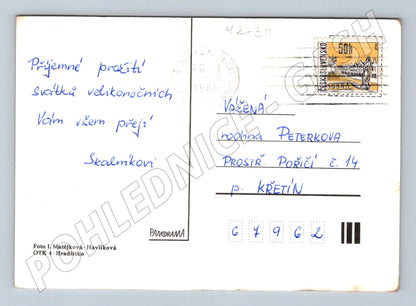 Příjemné prožití
svátků velikonočních
Vám všem přejí
Skalníkovi
Foto I. Matějková-Havlíková
OTK 4 Hradištko
PANORAMA
ČESKOSLOVENSKO
50h
VÁŽENÁ
rodina PETERKOVA
PROSTŘ. POŘIČÍ č. 14
p. KŘETÍN
6 7 9 6 2
POHLEDNICE-